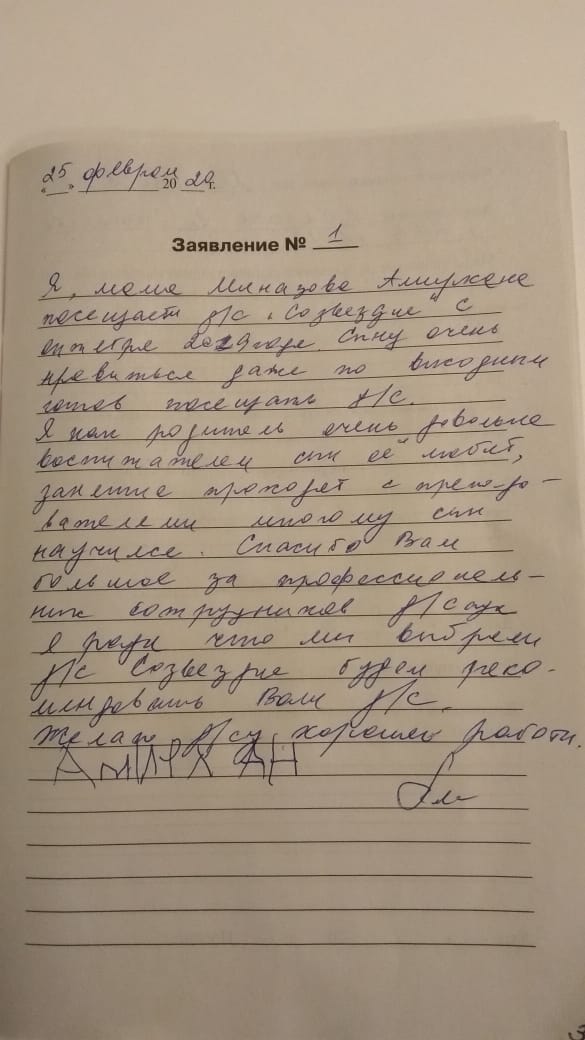 «25» февраля 2020г.
Заявление № 1
Я, мама Мназова Амирхана
посещаем д/с „Созвездие" с
октября 2019 года. Сыну очень
нравиться даже по выходным
готов посещать д/с.
Я как родитель очень довольна
воспитателем сын её любит,
занятие проходят с препадо-
вателями многому сын
научился. Спасибо Вам
большое за профессиональ-
ных сотрудников д/сада
Я рада что мы выбрали
д/с Созвездие будем реко-
мендовать Ваш д/с.
Желаю д/су хорошей работы.
АМИРХАН